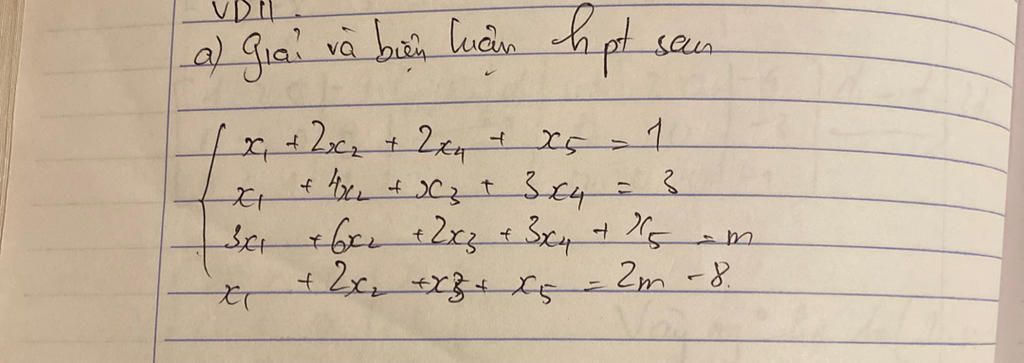 VD11.
a) Giải và biện luận hpt sau
x₁ + 2x₂ + 2x₄ + x₅ = 1
x₁ + 4x₂ + x₃ + 3x₄ = 3
3x₁ + 6x₂ + 2x₃ + 3x₄ + x₅ = m
x₁ + 2x₂ + x₃ + x₅ = 2m - 8.